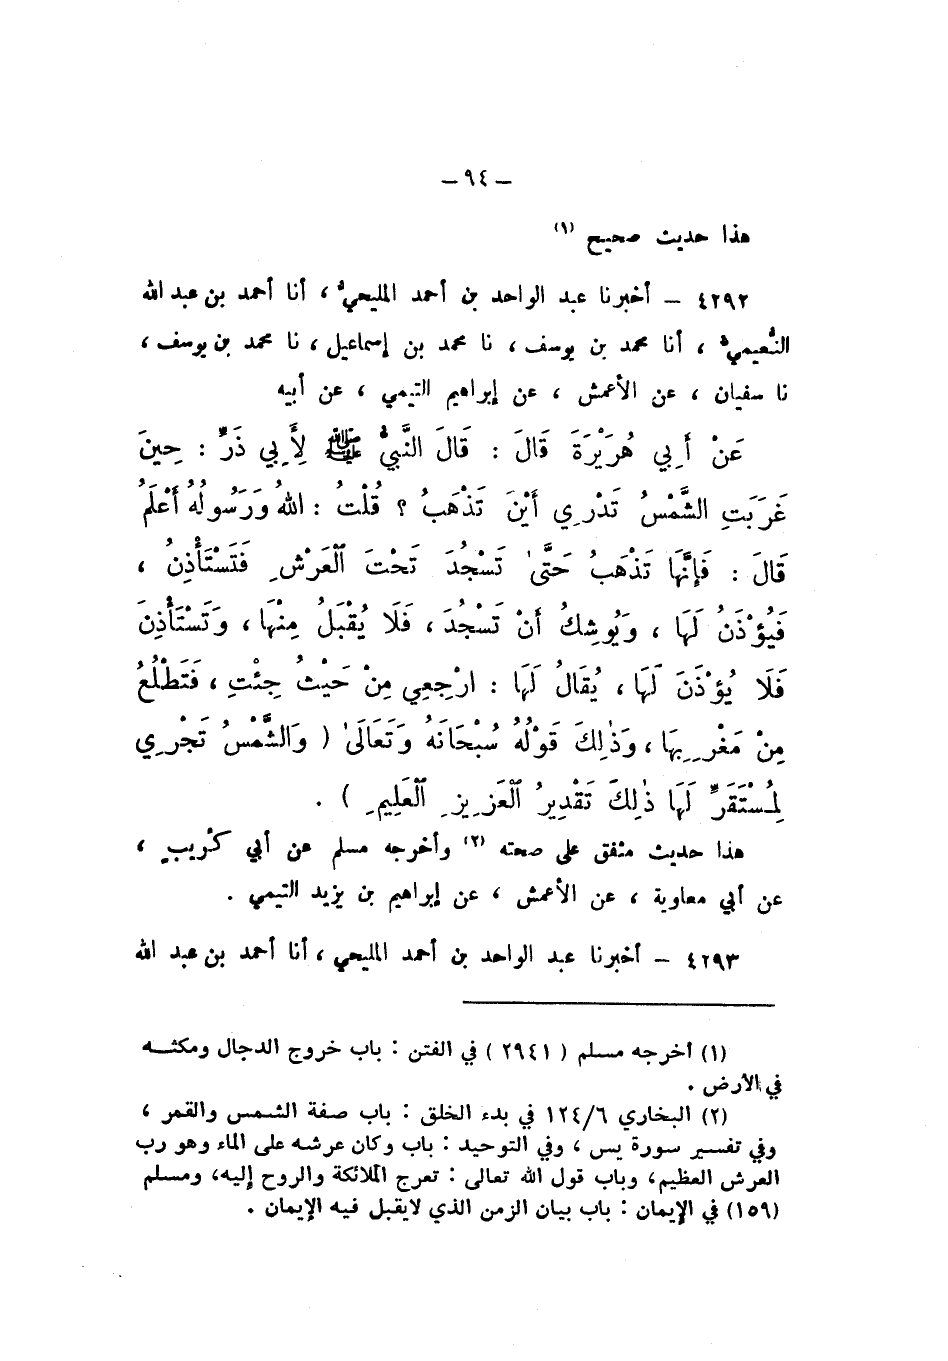 – ٩٤ –
هذا حديث صحيح (١)
٤٢٩٢ – أخبرنا عبد الواحد بن أحمد المليحيُّ ، أنا أحمد بن عبد الله
النُّعيميُّ ، أنا محمد بن يوسف ، نا محمد بن إسماعيل ، نا محمد بن يوسف ،
نا سفيان ، عن الأعمش ، عن إبراهيم التيمي ، عن أبيه
عَنْ أَبِي هُرَيْرَةَ قَالَ : قَالَ النَّبِيُّ ﷺ لِأَبِي ذَرٍّ : حِينَ
غَرَبَتِ الشَّمْسُ تَدْرِي أَيْنَ تَذْهَبُ ؟ قُلْتُ : اللهُ وَرَسُولُهُ أَعْلَمُ
قَالَ : فَإِنَّهَا تَذْهَبُ حَتَّىٰ تَسْجُدَ تَحْتَ ٱلْعَرْشِ فَتَسْتَأْذِنُ ،
فَيُؤْذَنُ لَهَا ، وَيُوشِكُ أَنْ تَسْجُدَ ، فَلَا يُقْبَلُ مِنْهَا ، وَتَسْتَأْذِنَ
فَلَا يُؤْذَنَ لَهَا ، يُقَالُ لَهَا : ارْجِعِي مِنْ حَيْثُ جِئْتِ ، فَتَطْلُعُ
مِنْ مَغْرِبِهَا ، وَذٰلِكَ قَوْلُهُ سُبْحَانَهُ وَتَعَالَىٰ ( وَالشَّمْسُ تَجْرِي
لِمُسْتَقَرٍّ لَهَا ذٰلِكَ تَقْدِيرُ ٱلْعَزِيزِ ٱلْعَلِيمِ ) .
هذا حديث متفق على صحته (٢) وأخرجه مسلم عن أبي كُرَيبٍ ،
عن أبي معاوية ، عن الأعمش ، عن إبراهيم بن يزيد التيمي .
٤٢٩٣ – أخبرنا عبد الواحد بن أحمد المليحي ، أنا أحمد بن عبد الله
(١) أخرجه مسلم ( ٢٩٤١ ) في الفتن : باب خروج الدجال ومكثــه
في الأرض .
(٢) البخاري ١٢٤/٦ في بدء الخلق : باب صفة الشمس والقمر ،
وفي تفسير سورة يس ، وفي التوحيد : باب وكان عرشه على الماء وهو رب
العرش العظيم ، وباب قول الله تعالى : تعرج الملائكة والروح إليه ، ومسلم
(١٥٩) في الإيمان : باب بيان الزمن الذي لايقبل فيه الإيمان .